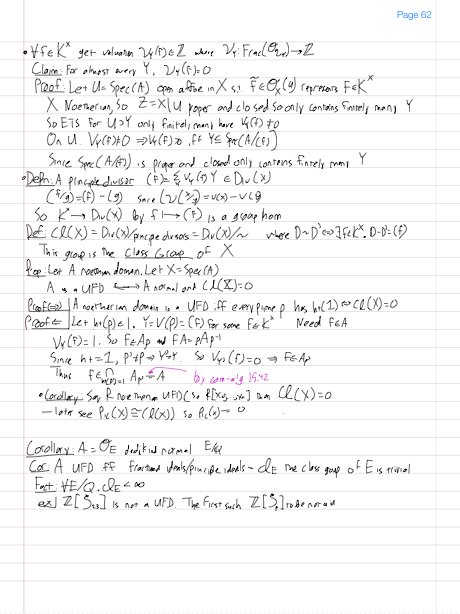 Page 62
• ∀f∈K^x get valuation V_Y(f)∈Z where V_Y: Frac(O_{X,Y})→Z
Claim: For almost every Y, V_Y(f)=0
Proof: Let U=Spec(A) open affine in X s.t. f∈O_X(U) represents f∈K^x
X Noetherian, So Z=X\U proper and closed so only contains finitely many Y
So ETS for U∋Y only finitely many have V_Y(f)≠0
On U. V_Y(f)≠0 ⇒V_Y(f)>0 iff Y⊆Spec(A/(f))
Since Spec(A/(f)) is proper and closed only contains finitely many Y
• Defn: A principle divisor (f)=Σ V_Y(f) Y ∈ Div(X)
(f/g)=(f)-(g) since V(x/y)=V(x)-V(y)
So K^x→Div(X) by f↦(f) is a group hom
Def: Cl(X)=Div(X)/principle divisors=Div(X)/~ where D~D'⇔∃f∈K^x. D-D'=(f)
This group is the Class Group of X
Prop: Let A noetherian domain. Let X=Spec(A)
A is a UFD ⟺ A normal and Cl(X)=0
Proof(⇒) A noetherian domain is a UFD iff every prime p has ht(1) ⇔ Cl(X)=0
Proof ⇐ Let ht(p)=1, Y=V(p)=(f) for some f∈K^x Need f∈A
V_Y(f)=1, So f∈A_p and fA_p=pA_p
Since ht=1, p'≠p ⇒ Y'≠Y. So V_{Y'}(f)=0 ⇒ f∈A_p
Thus f∈∩_{ht(p)=1} A_p=A by com-alg 15.42
• Corollary: Say R noetherian UFD (so R[x_0,..,x_n] then Cl(X)=0
- later see Pic(X)≅Cl(X) so Pic(X)=0
Corollary: A=O_E dedekind normal E/Q
Cor: A UFD iff fractional ideals/principle ideals = Cl_E the class group of E is trivial
Fact: ∀E/Q. Cl_E<∞
ex) Z[ζ_23] is not a UFD. The first such Z[ζ_n] to be not a u